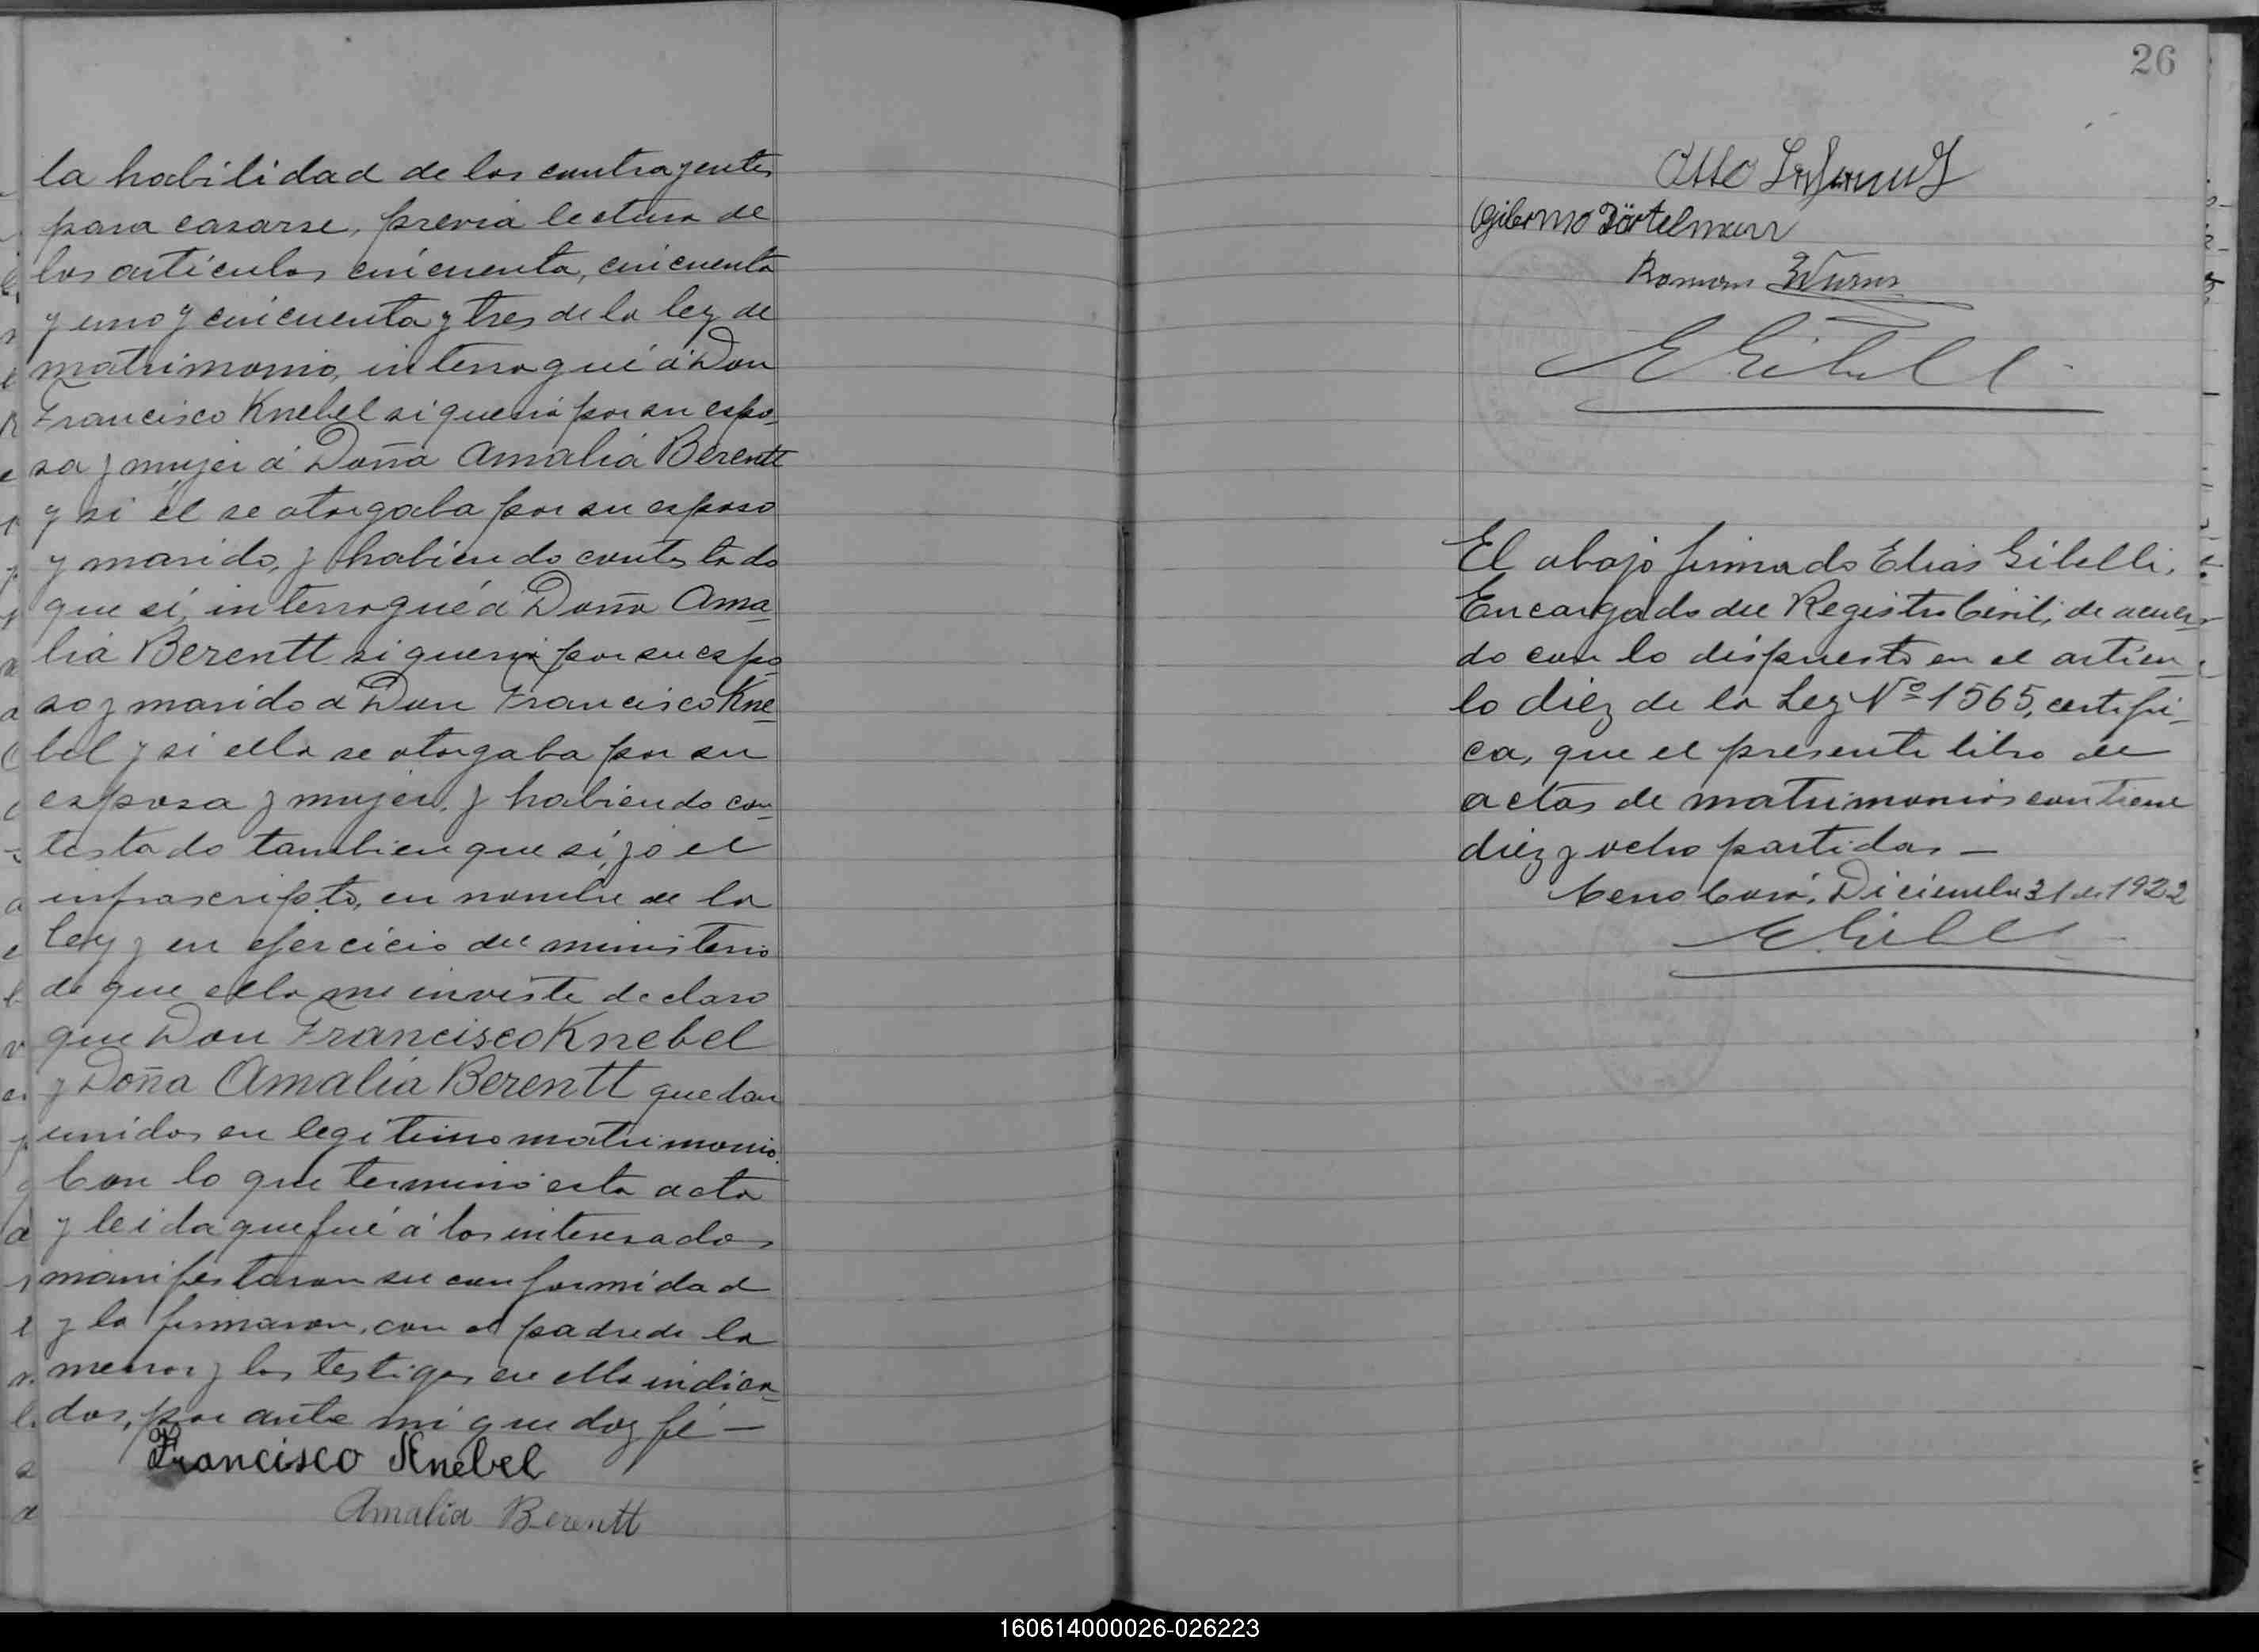 la habilidad de los contrayentes
para casarse, previa lectura de
los artículos cincuenta, cincuenta
y uno y cincuenta y tres de la ley de
matrimonio, interrogué á Don
Francisco Knebel si queria por su espo-
sa y mujer á Doña Amalia Berentt
y si él se otorgaba por su esposo
y marido, y habiendo contestado
que sí, interrogué á Doña Ama-
lia Berentt si queria por su espo-
so y marido á Don Francisco Kne-
bel y si ella se otorgaba por su
esposa y mujer, y habiendo con-
testado tambien que sí, yo el
infrascripto, en nombre de la
ley y en ejercicio del ministerio
de que ella me inviste declaro
que Don Francisco Knebel
y Doña Amalia Berentt quedan
unidos en legitimo matrimonio.
Con lo que terminó esta acta
y leida que fué á los interesados
manifestaron su conformidad
y la firmaron, con el padre de la
menor y los testigos en ella indica-
dos, por ante mí que doy fé —
Francisco Knebel
Amalia Berentt
26
Otto
Gilermo Dörtelmann
Roman Wurm
E Gibelli
El abajo firmado Elias Gibelli,
Encargado del Registro Civil, de acuer-
do con lo dispuesto en el artícu-
lo diez de la Ley Nº 1565, certifi-
ca, que el presente libro de
actas de matrimonios contiene
diez y ocho partidas —
Cerro Corá, Diciembre 31 de 1922
E Gibelli
160614000026-026223